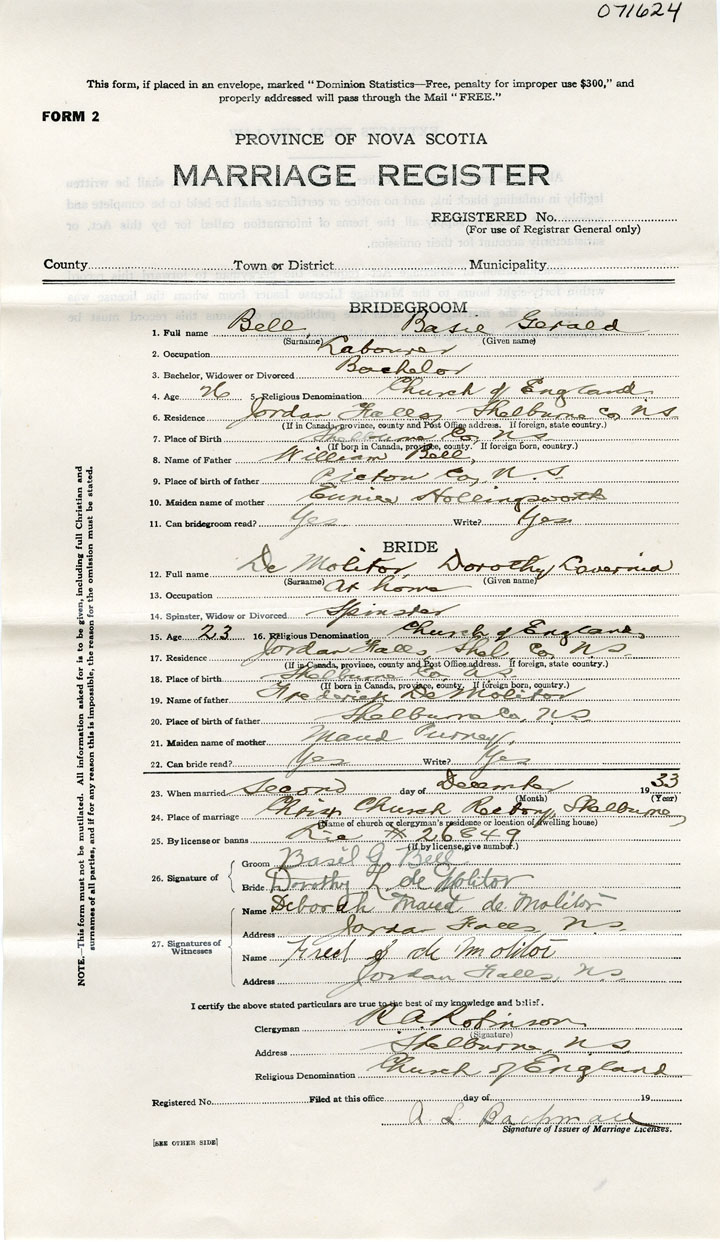 071624
This form, if placed in an envelope, marked "Dominion Statistics—Free, penalty for improper use $300," and
properly addressed will pass through the Mail "FREE."
FORM 2
PROVINCE OF NOVA SCOTIA
MARRIAGE REGISTER
REGISTERED No.
(For use of Registrar General only)
County Town or District Municipality
BRIDEGROOM
1. Full name Bell, Basil Gerald
(Surname) (Given name)
2. Occupation Labourer
3. Bachelor, Widower or Divorced Bachelor
4. Age 26 5. Religious Denomination Church of England
6. Residence Jordan Falls, Shelburne Co, N.S.
(If in Canada, province, county and Post Office address. If foreign, state country.)
7. Place of Birth Shelburne Co, N.S.
(If born in Canada, province, county. If foreign born, country.)
8. Name of Father William Bell,
9. Place of birth of father Pictou Co, N.S.
10. Maiden name of mother Eunice Hollingsworth
11. Can bridegroom read? Yes Write? Yes
BRIDE
12. Full name De Molitor, Dorothy Lavernia
(Surname) (Given name)
13. Occupation At home
14. Spinster, Widow or Divorced Spinster
15. Age 23 16. Religious Denomination Church of England
17. Residence Jordan Falls, Shel. Co, N.S.
(If in Canada, province, county and Post Office address. If foreign, state country.)
18. Place of birth Shelburne Co, N.S.
(If born in Canada, province, county. If foreign born, country.)
19. Name of father Frederick De Molitor
20. Place of birth of father Shelburne Co, N.S.
21. Maiden name of mother Maud Purney,
22. Can bride read? Yes Write? Yes
23. When married second day of December 1933
(Month) (Year)
24. Place of marriage Christ Church Rectory, Shelburne
(Name of church or clergyman's residence or location of dwelling house)
25. By license or banns Lic # 26849
(If by license, give number.)
26. Signature of Groom Basil G. Bell
Bride Dorothy L de Molitor
27. Signatures of Witnesses
Name Deborah Maud de Molitor
Address Jordan Falls, N.S.
Name Fred de Molitor
Address Jordan Falls, N.S.
I certify the above stated particulars are true to the best of my knowledge and belief.
Clergyman R A Robinson
(Signature)
Address Shelburne, N.S.
Religious Denomination Church of England
Registered No. Filed at this office day of 19
Signature of Issuer of Marriage Licenses.
[SEE OTHER SIDE]
NOTE.—This form must not be mutilated. All information asked for is to be given, including full Christian and
surnames of all parties, and if for any reason this is impossible, the reason for the omission must be stated.